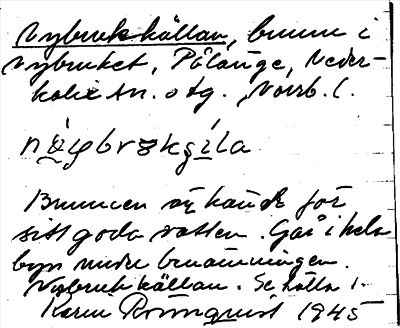 Nybrukskällan, brunn i
Nybruket, Pålänge, Neder-
kalix sn. o tg., Norrb. l.
Brunnen är känd för
sitt goda vatten. Går i hela
byn under benämningen
Nybrukskällan. Se källa 1.
Karin Rönnquist 1945